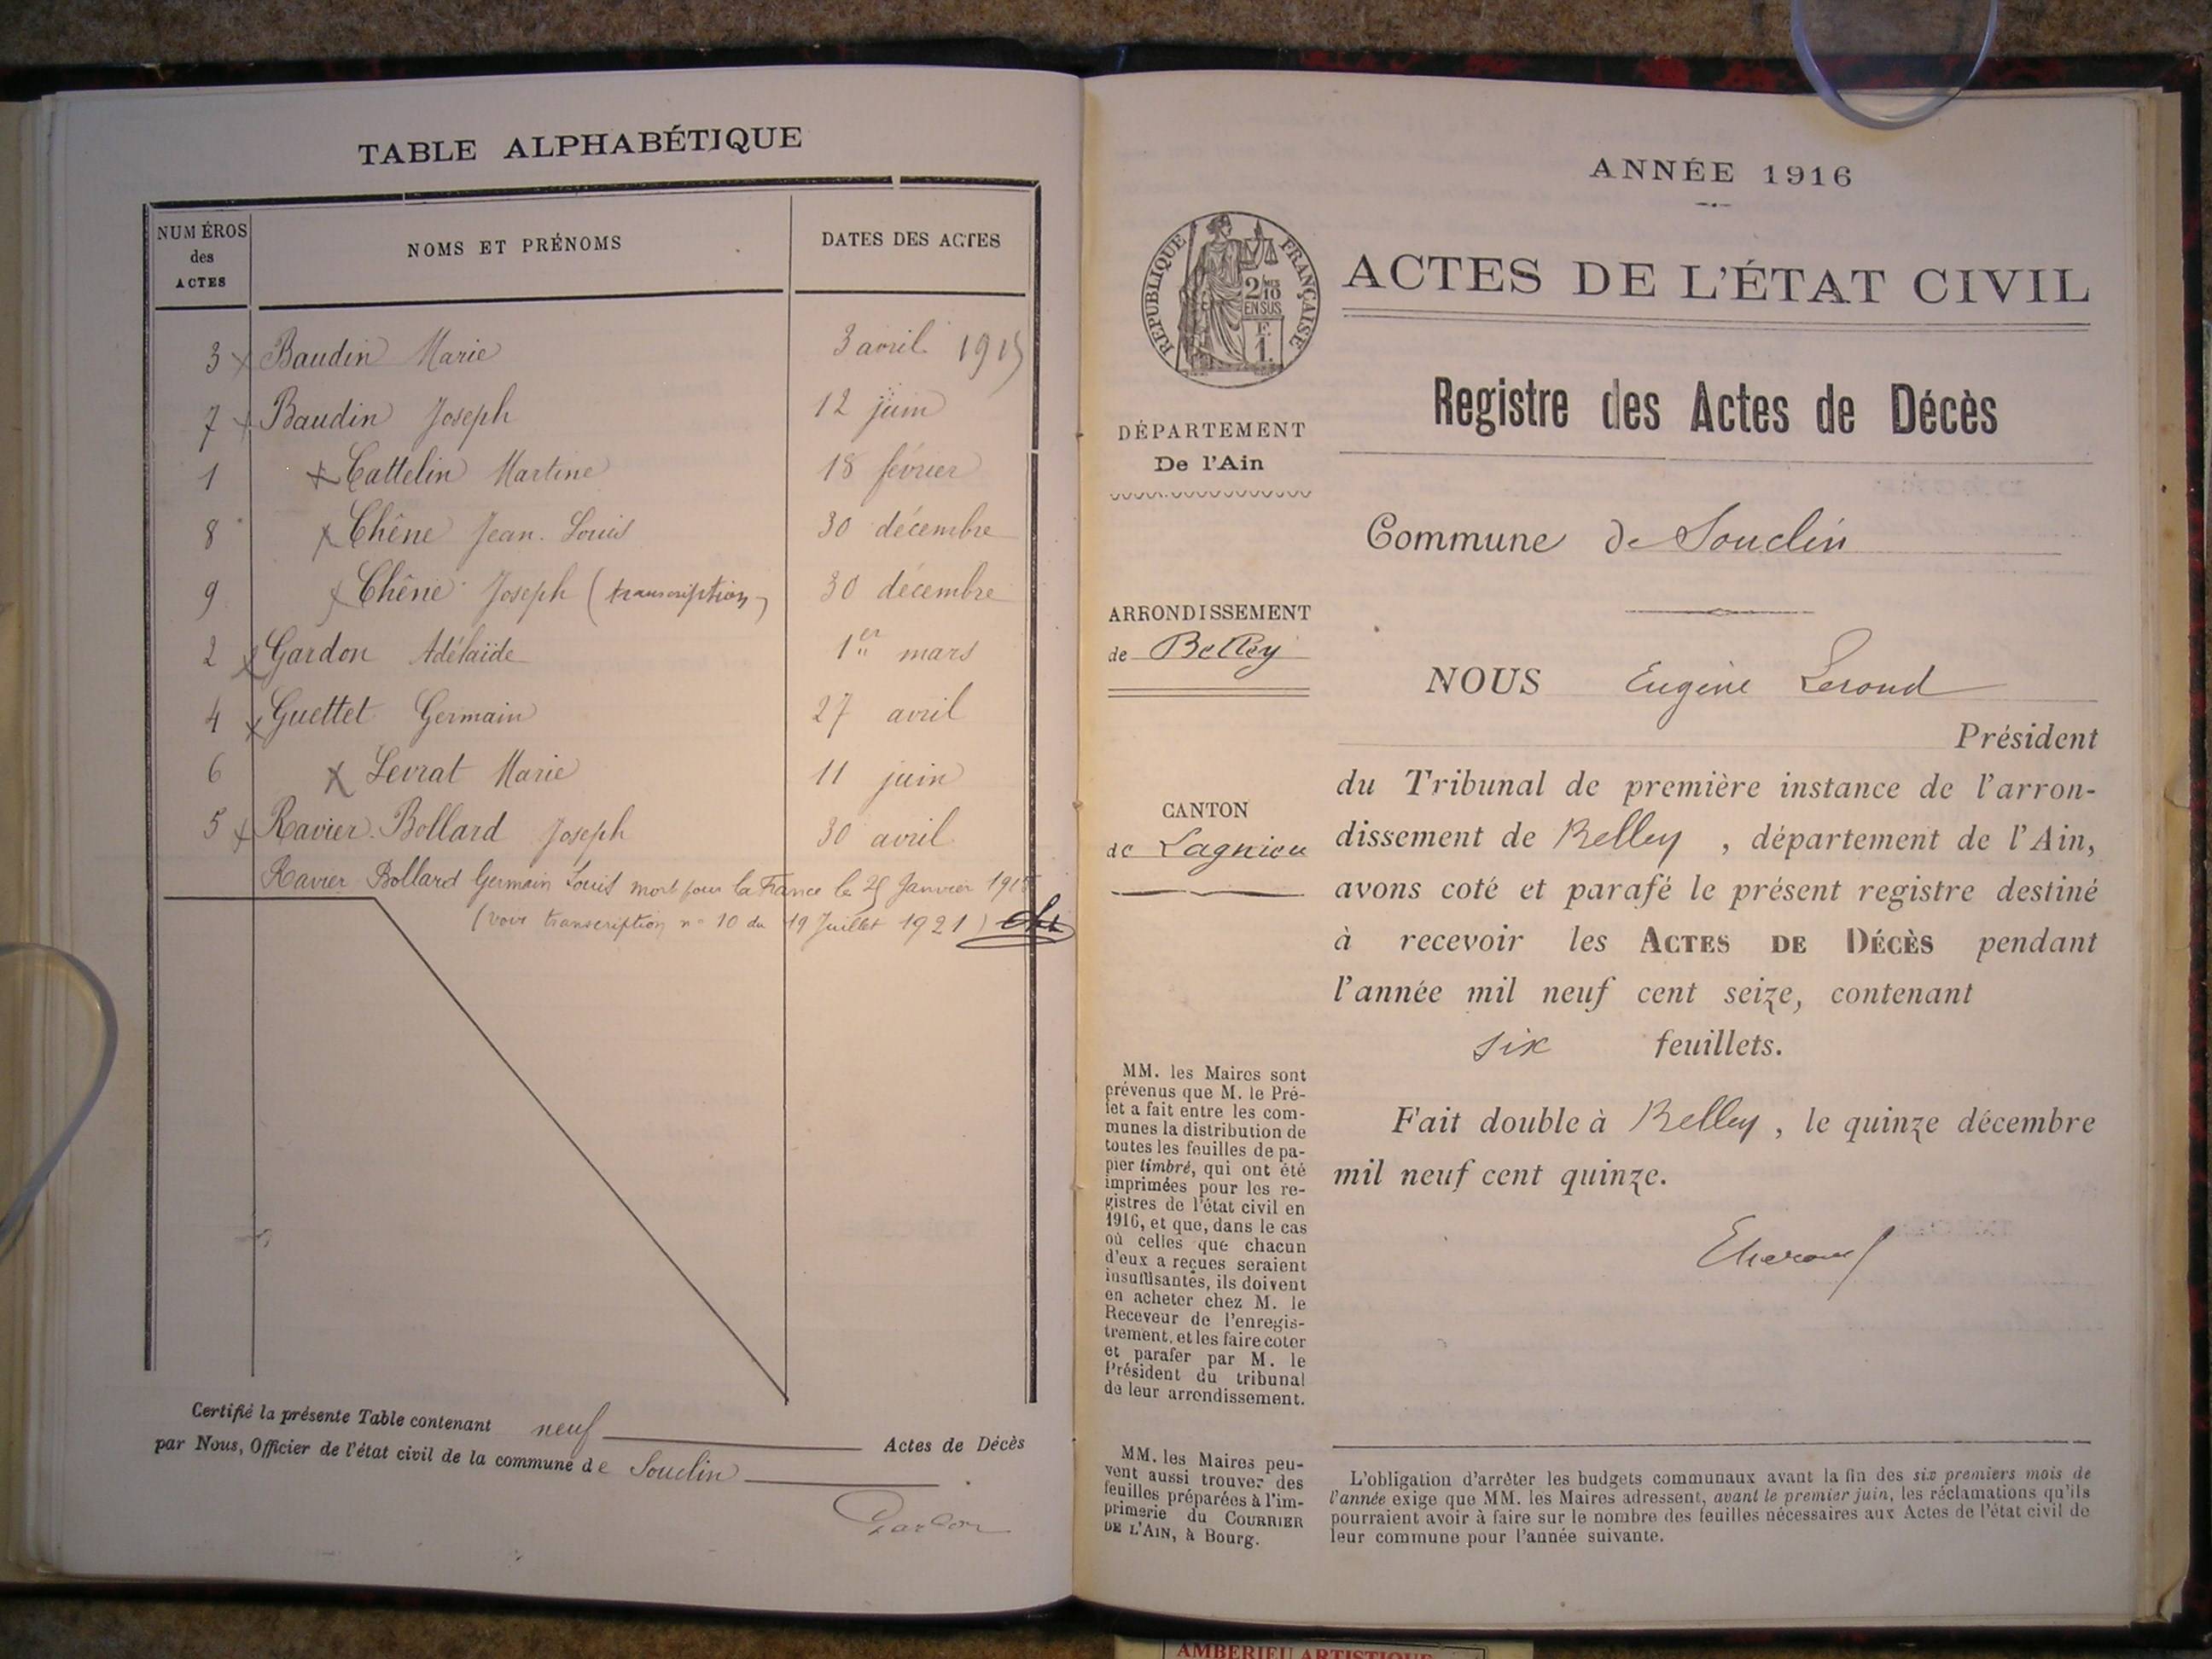 TABLE ALPHABÉTIQUE
NUMÉROS
des
ACTES
NOMS ET PRÉNOMS
DATES DES ACTES
3 x Baudin Marie 3 avril 1915
7 x Baudin Joseph 12 juin
1 x Cattelin Martine 18 février
8 x Chêne Jean. Louis 30 décembre
9 x Chêne Joseph (transcription) 30 décembre
2 x Gardon Adélaïde 1er mars
4 x Guettet Germain 27 avril
6 x Levrat Marie 11 juin
5 x Ravier-Bollard Joseph 30 avril
Ravier Bollard Germain Louis mort pour la France le 25 Janvier 1915
(voir transcription n° 10 du 19 Juillet 1921)
Certifié la présente Table contenant neuf Actes de Décès
par Nous, Officier de l'état civil de la commune de Souclin
Gardon
ANNÉE 1916
RÉPUBLIQUE FRANÇAISE
2/10
EN SUS
F.
1.
ACTES DE L'ÉTAT CIVIL
Registre des Actes de Décès
DÉPARTEMENT
De l'Ain
Commune de Souclin
ARRONDISSEMENT
de Belley
NOUS Eugène Lerond
Président
du Tribunal de première instance de l'arron-
dissement de Belley, département de l'Ain,
avons coté et parafé le présent registre destiné
à recevoir les ACTES DE DÉCÈS pendant
l'année mil neuf cent seize, contenant
six feuillets.
Fait double à Belley, le quinze décembre
mil neuf cent quinze.
CANTON
de Lagnieu
MM. les Maires sont
prévenus que M. le Pré-
fet a fait entre les com-
munes la distribution de
toutes les feuilles de pa-
pier timbré, qui ont été
imprimées pour les re-
gistres de l'état civil en
1916, et que, dans le cas
où celles que chacun
d'eux a reçues seraient
insuffisantes, ils doivent
en acheter chez M. le
Receveur de l'enregis-
trement, et les faire coter
et parafer par M. le
Président du tribunal
de leur arrondissement.
MM. les Maires peu-
vent aussi trouver des
feuilles préparées à l'im-
primerie du COURRIER
DE L'AIN, à Bourg.
L'obligation d'arrêter les budgets communaux avant la fin des six premiers mois de
l'année exige que MM. les Maires adressent, avant le premier juin, les réclamations qu'ils
pourraient avoir à faire sur le nombre des feuilles nécessaires aux Actes de l'état civil de
leur commune pour l'année suivante.
AMBERIEU ARTISTIQUE